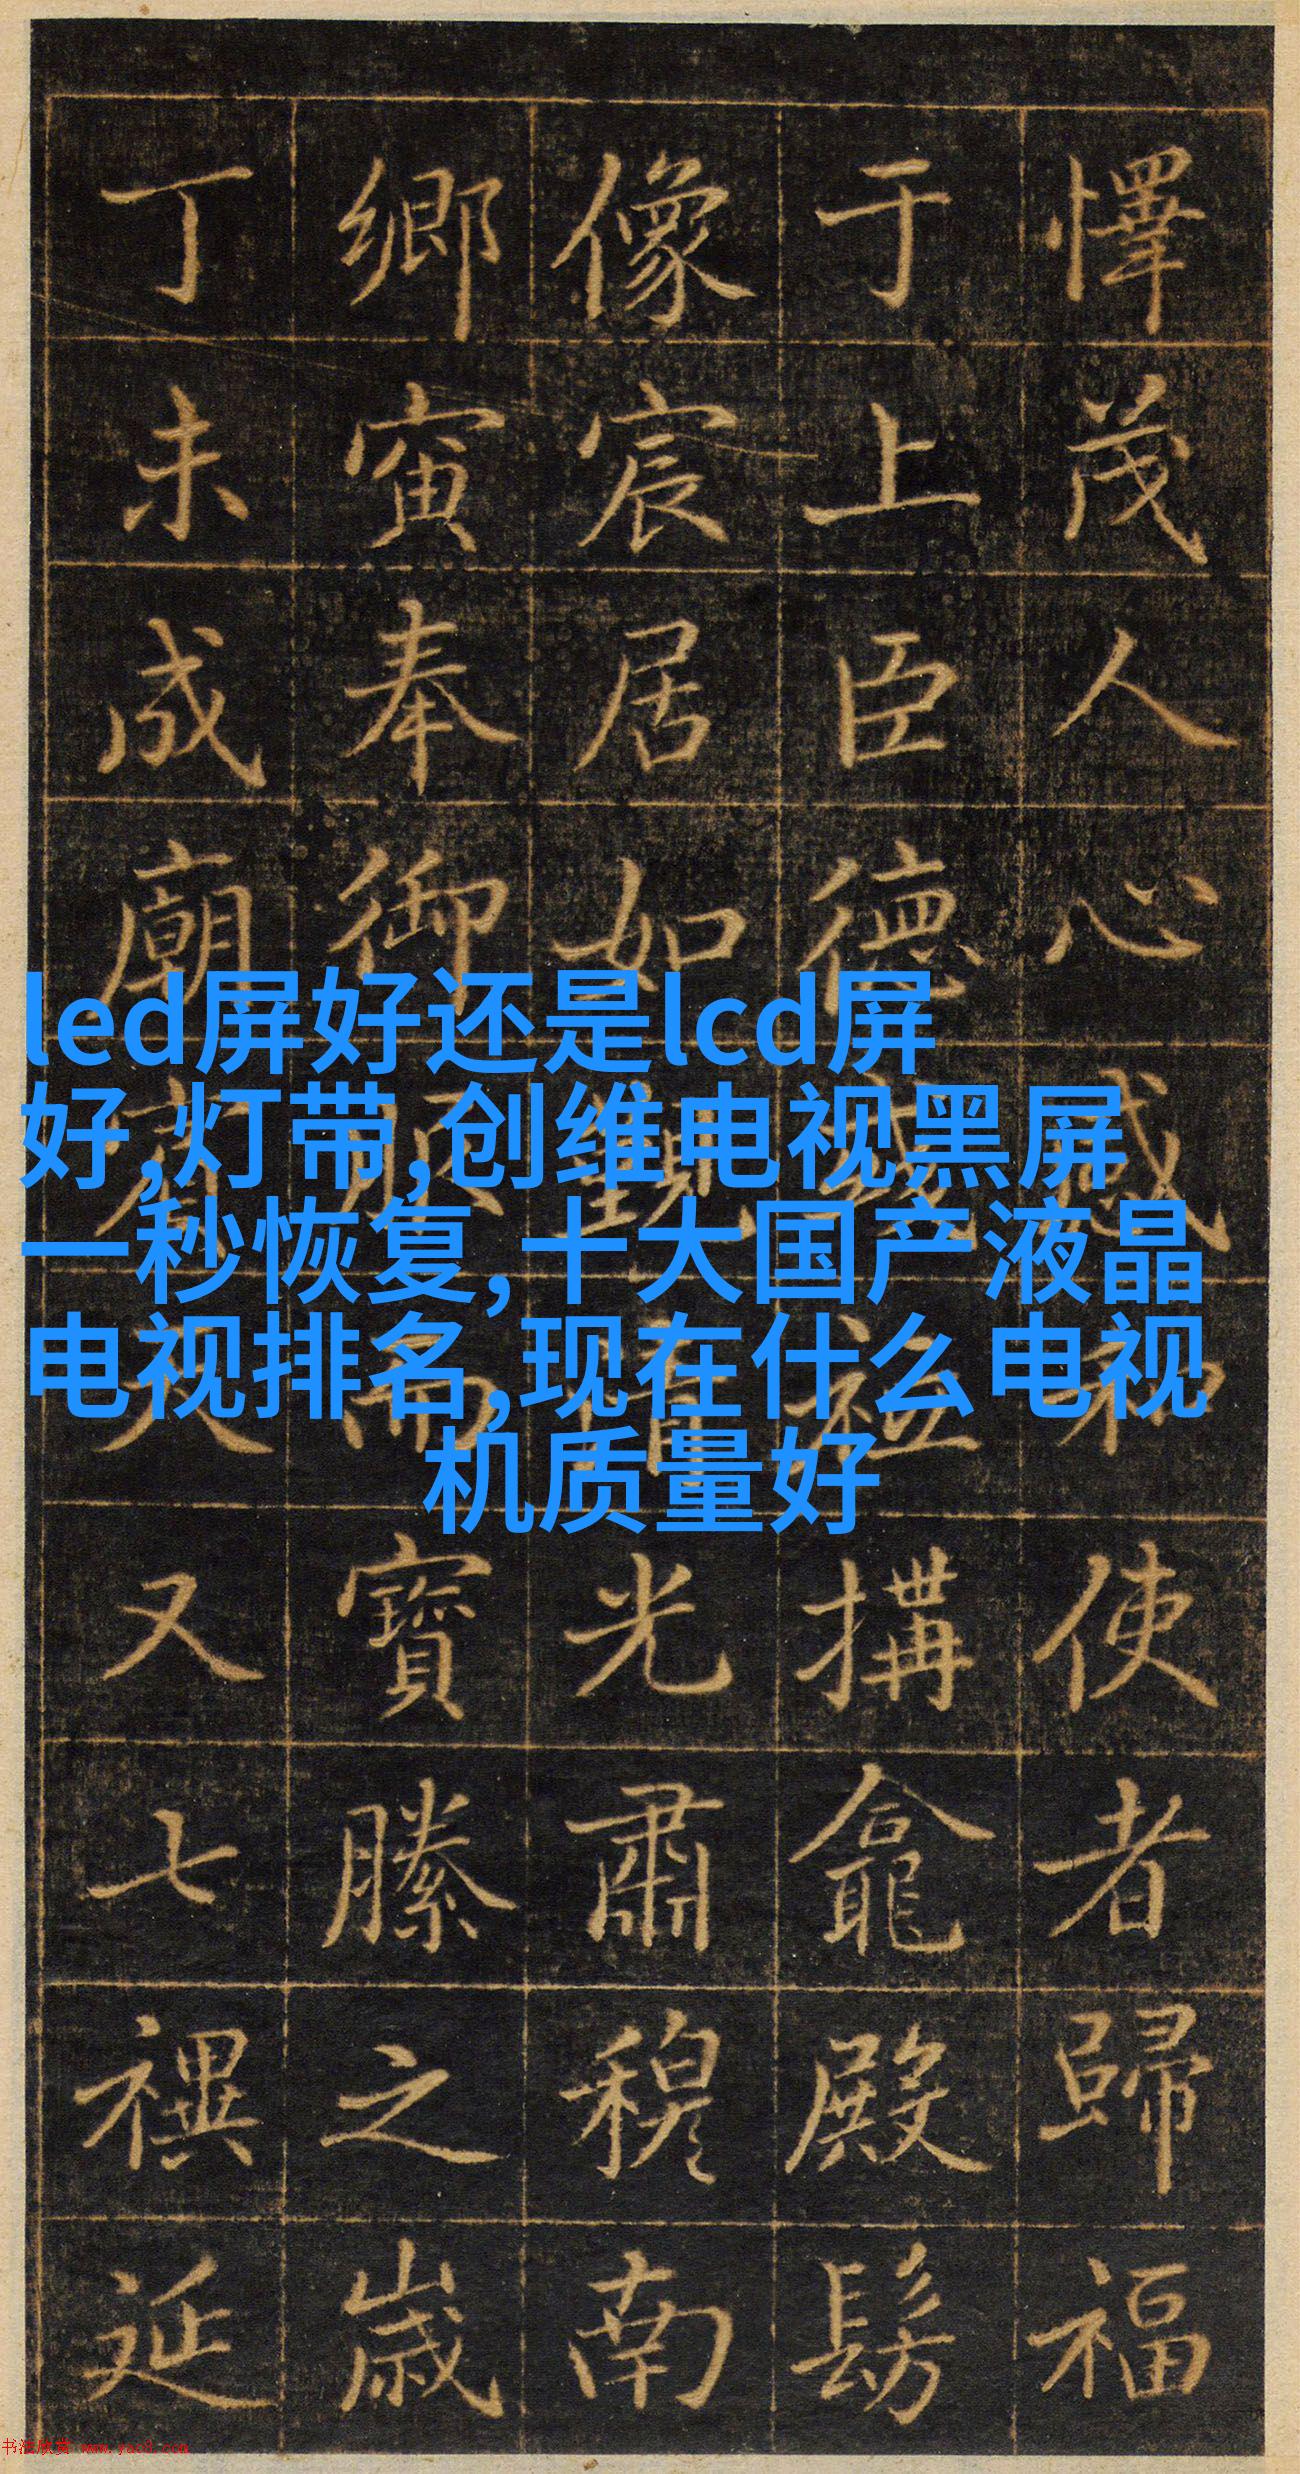 懌茂人心感和使者歸福
于上臣德搆龕殿髣
像宸居如觀光肅穆南
鄉寅奉御而寶縢之歲
丁未成廟又七禩延
led屏好还是lcd屏
好,灯带,创维电视黑屏
一秒恢复,十大国产液晶
电视排名,现在什么电视
机质量好
书法欣赏 www.yac8.com